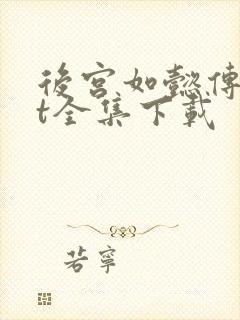 後宮如懿傳
t全集下載
若寧